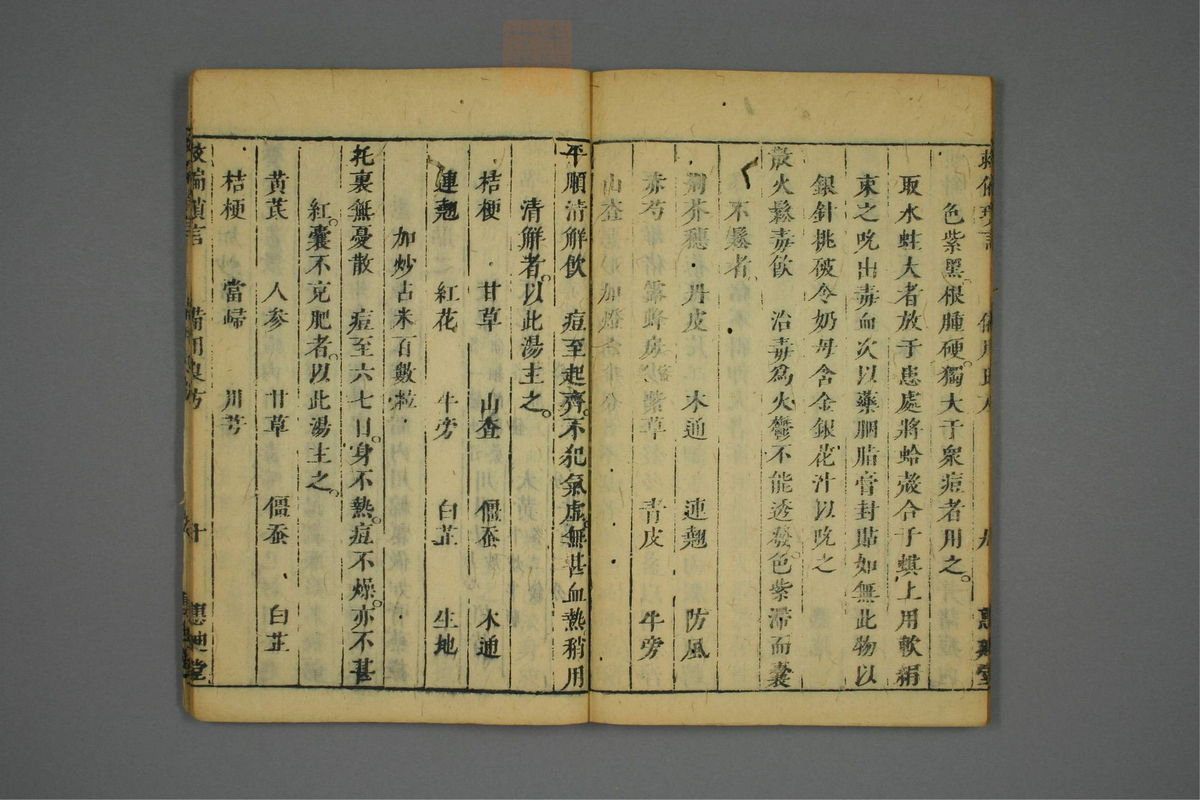 色紫黑根腫硬獨大于衆痘者用之
取水蛙大者放于患處將蛤殼合于蜞上用軟絹
束之吮出毒血次以藥胭脂膏封貼如無此物以
銀針挑破令奶母含金銀花汁以吮之
散火鬆毒飲 治毒爲火鬱不能透發色紫滯而囊
不鬆者
荆芥穗 丹皮 木通 連翹 防風
赤芍 露蜂房 紫草 青皮 牛旁
山查
平順清解飲 痘至起齊不犯氣虛無甚血熱稍用
清解者以此湯主之
桔梗 甘草 山查 僵蚕 木通
連翹 紅花 牛旁 白芷 生地
加炒古米百數粒
托裏無憂散 痘至六七日身不熱痘不燥亦不甚
紅囊不克肥者以此湯主之
黃芪 人參 甘草 僵蚕 白芷
桔梗 當歸 川芎
備用良方 十